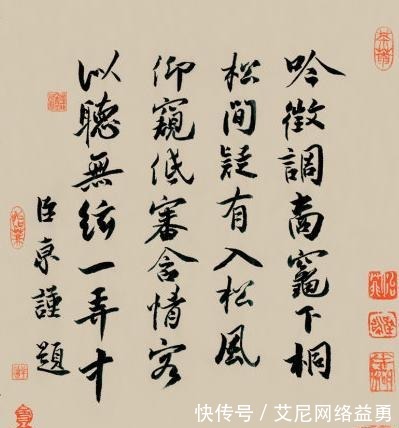 吟徵調商竈下桐
松間疑有入松風
仰窺低審含情客
似聽無絃一弄中
臣京謹題
快传号 / 艾尼网络益勇